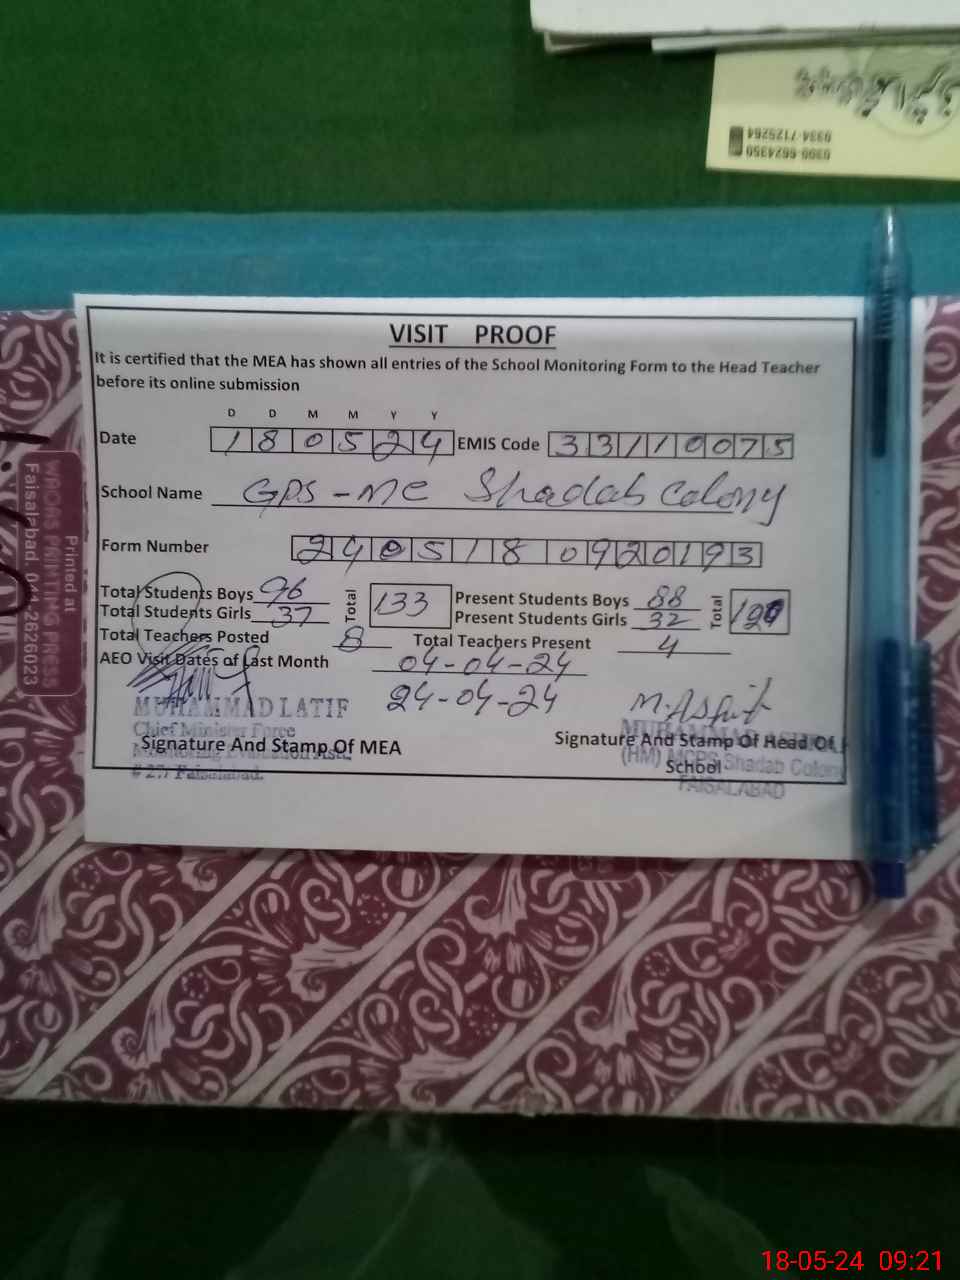 0334-7125264
0300-6624350
VISIT PROOF
It is certified that the MEA has shown all entries of the School Monitoring Form to the Head Teacher
before its online submission
D D M M Y Y
Date 180524 EMIS Code 33110075
School Name GPS-ME Shadab Colony
Form Number 2405180920193
Total Students Boys 96 Total 133 Present Students Boys 88 Total 120
Total Students Girls 37 Present Students Girls 32
Total Teachers Posted 8 Total Teachers Present 4
AEO Visit Dates of Last Month 04-04-24
24-04-24
MUHAMMAD LATIF
Chief Minister Force
Monitoring Evaluation Astt.
Faisalabad.
Signature And Stamp Of MEA
M.Ashfit
Signature And Stamp Of Head Of
School
(HM) MCPS Shadab Colony
FAISALABAD
Printed at
WAQAS PRINTING PRESS
Faisalabad. 041-2626023
18-05-24 09:21